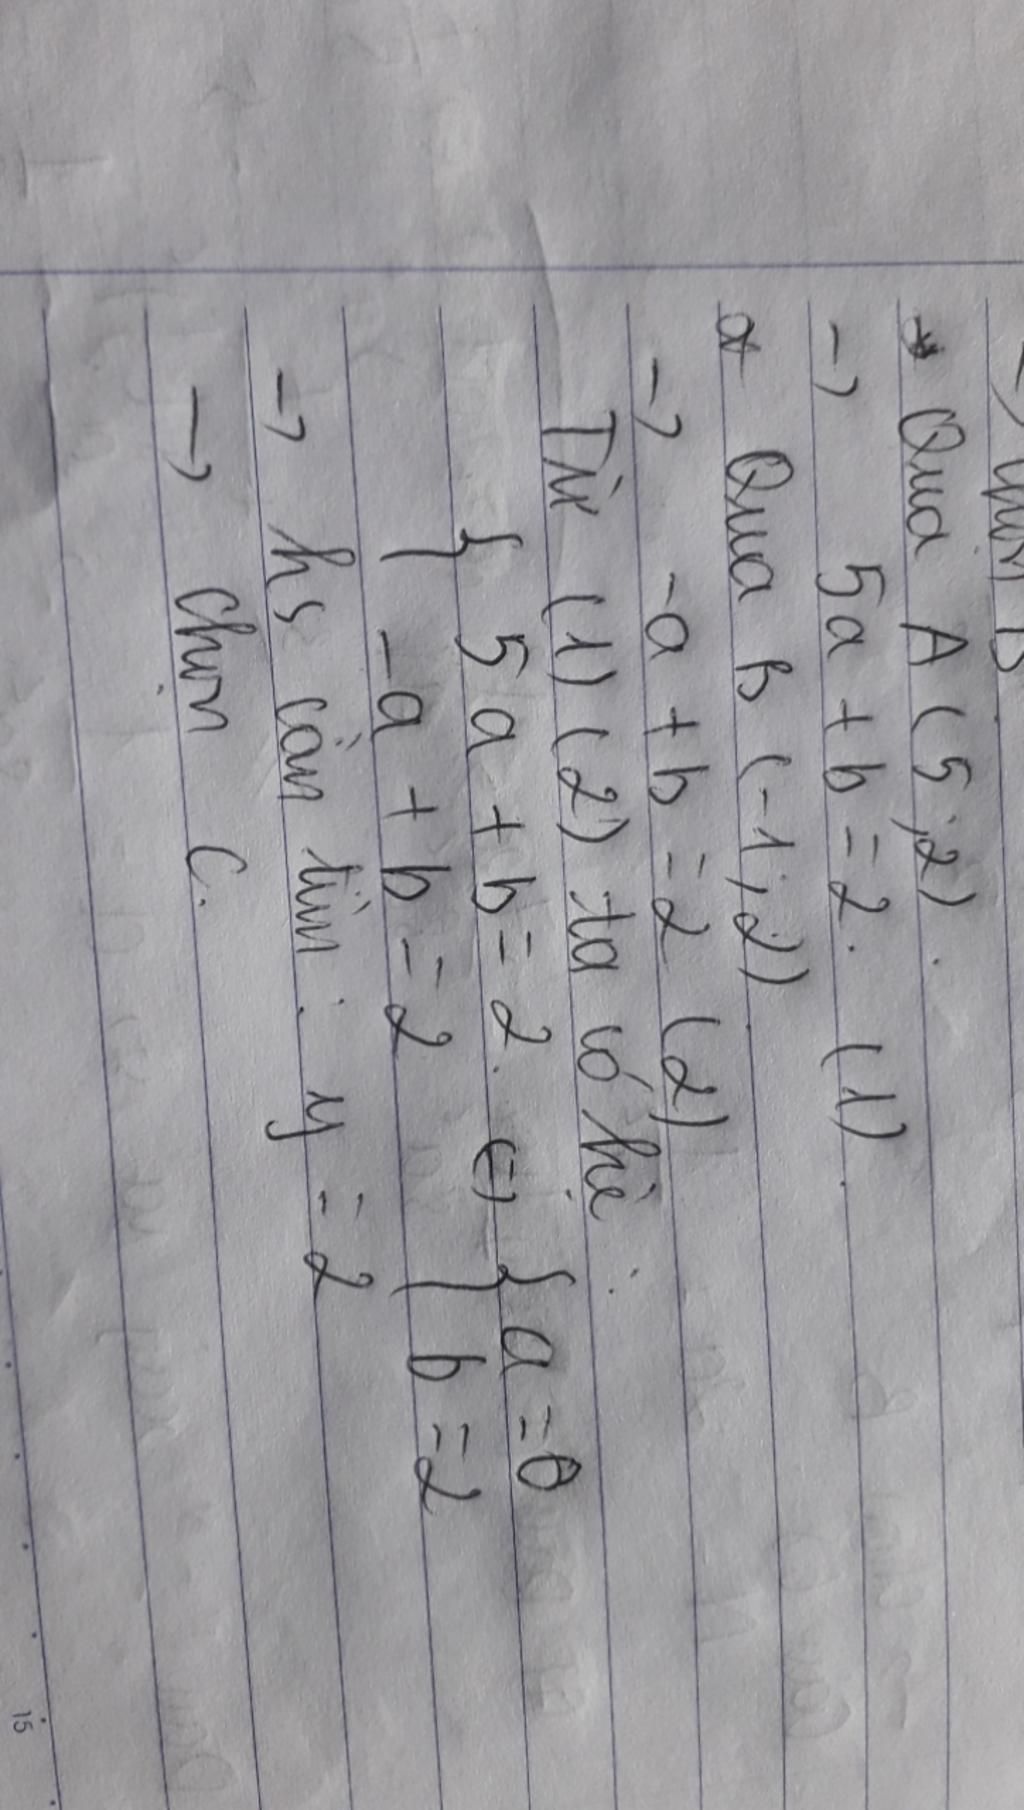 → Chọn B
* Qua A (5;2).
→ 5a + b = 2. (1)
* Qua B (-1;2)
→ -a + b = 2 (2)
Từ (1) (2) ta có hệ:
{ 5a + b = 2. ⇔ { a = 0
{ -a + b = 2 { b = 2
→ hs cần tìm: y = 2
→ Chọn C.
15